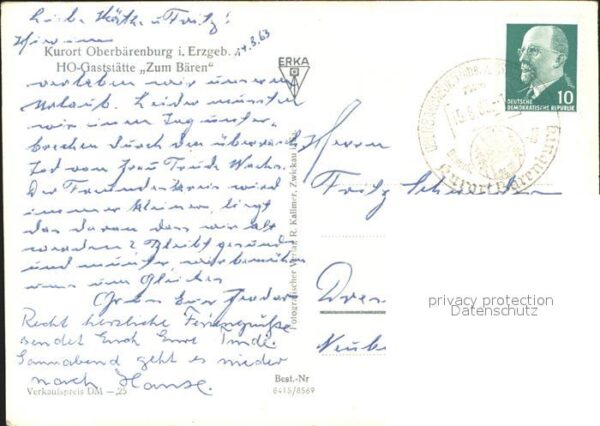 Liebe Käthe u. Fritz!
Hier in 14.8.63
Kurort Oberbärenburg i. Erzgeb.
HO-Gaststätte „Zum Bären“
verleben wir unseren
Urlaub. Leider mussten
wir ihn
brechen durch den
Tod von Frau Trude
Der Freundeskreis wird
immer kleiner, liegt
das daran dass wir alt
werden? Bleibt gesund
und munter, wir bemühen
uns um Gleiches
Euer
Recht herzliche Feriengrüße
sendet Euch Eure
Sonnabend geht es wieder
nach Hause.
Verkaufspreis DM —,25
ERKA
Fotografischer Verlag R. Kallmer, Zwickau
Best.-Nr
6415/8569
DEUTSCHE
DEMOKRATISCHE REPUBLIK
10
Kurort Bärenburg
Herrn
Fritz
Dres
Neub
privacy protection
Datenschutz